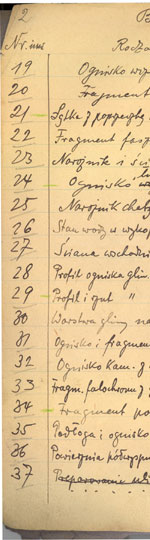 2
Nr. inw Rodza
19 Ognisko wzp
20 Fragment
21 Łątka z poprzeczką
22 Fragment fasz
23 Narożnik i ści
24 Ognisko
25 Narożnik chaty
26 Stan wody w wykop
27 Ściana wschodni
28 Profil ogniska glin
29 Profil i rzut "
30 Warstwa gliny na
31 Ognisko i fragmen
32 Ognisko kam. z
33 Fragm. falochronu z
34 Fragment po
35 Podłoga i ognisko
36 Powierzchnia
37